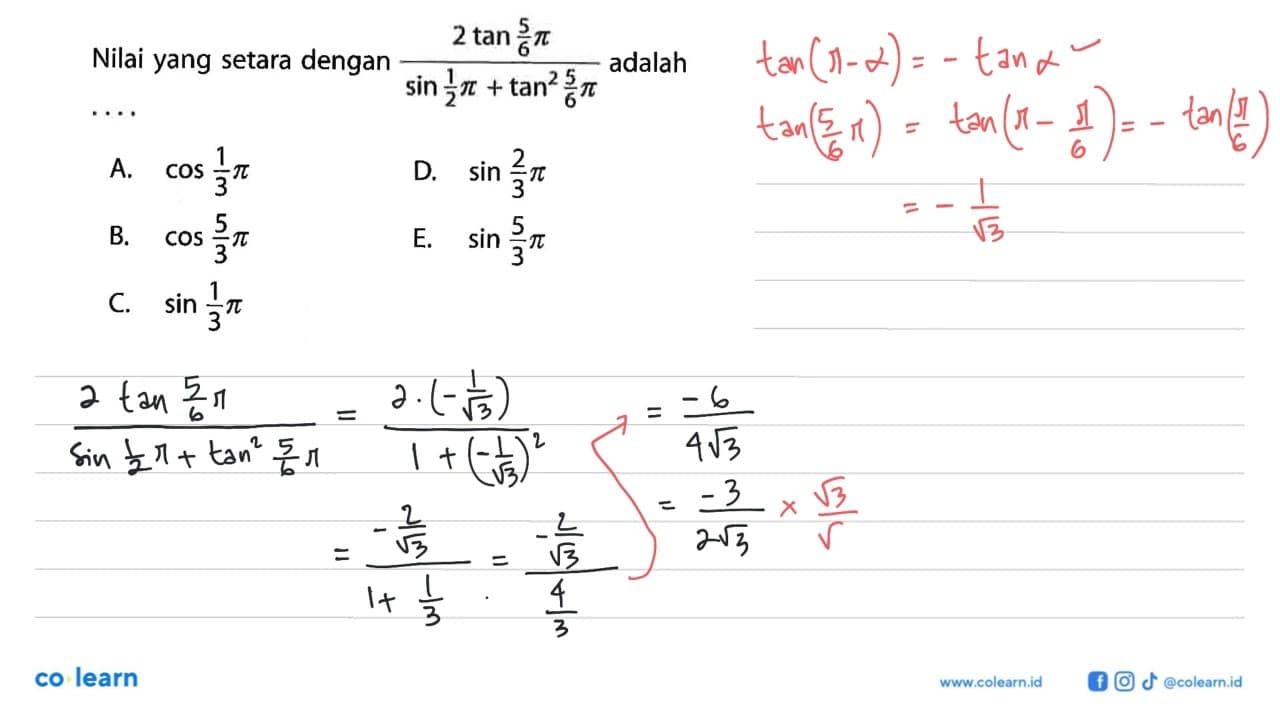 Nilai yang setara dengan (2 tan 5/6 π)/(sin 1/2 π + tan² 5/6 π) adalah
....
A. cos 1/3 π
B. cos 5/3 π
C. sin 1/3 π
D. sin 2/3 π
E. sin 5/3 π
tan(π-α) = - tan α ✓
tan(5/6 π) = tan(π - π/6) = - tan(π/6)
= - 1/√3
(2 tan 5/6 π)/(sin 1/2 π + tan² 5/6 π) = (2·(-1/√3))/(1 + (-1/√3)²)
= (-2/√3)/(1 + 1/3) = (-2/√3)/(4/3)
= -6/(4√3)
= -3/(2√3) × √3/√
co learn
www.colearn.id
@colearn.id